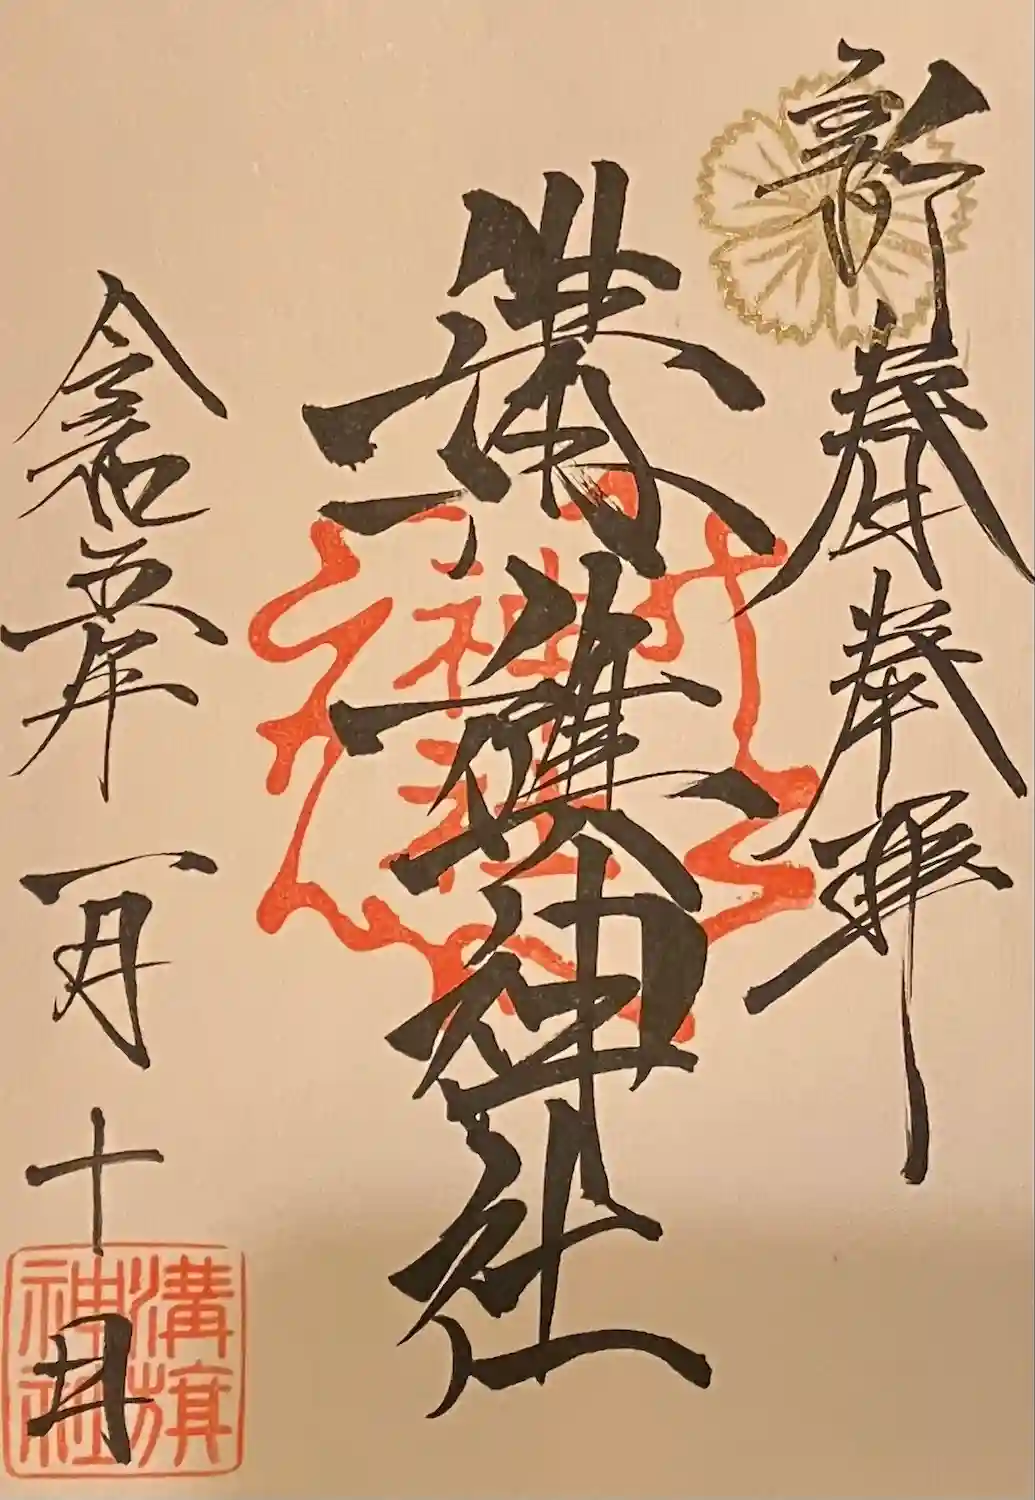 新春奉拝
溝旗神社
令和五年一月十日
溝旗
神社
神社